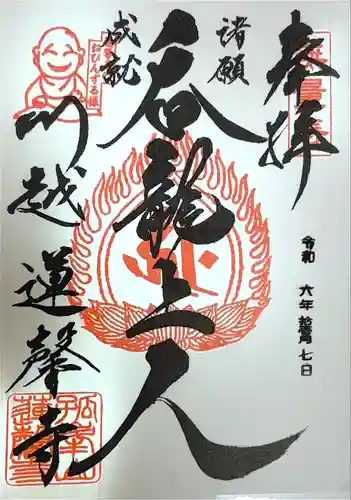 奉拝
令和 六年 拾月 七日
諸願
成就
呑龍上人
おびんずる様
川越 蓮馨寺